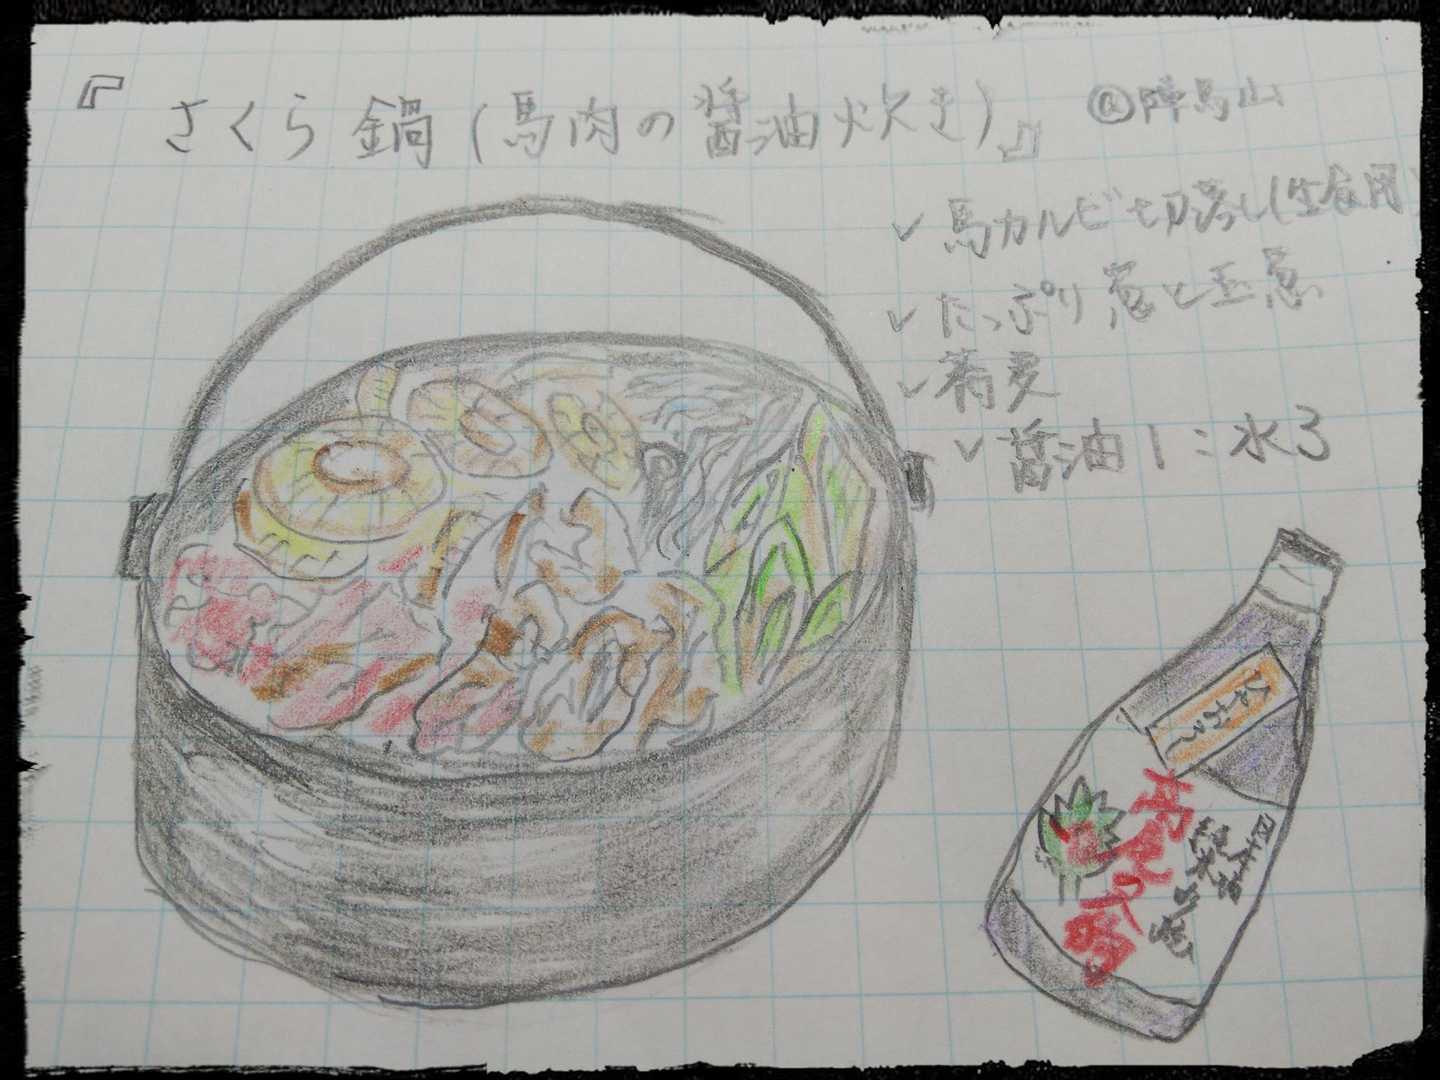 『さくら鍋(馬肉の醤油炊き)』 @陣馬山
✓ 馬カルビ切落し(生食用)
✓ たっぷり葱と玉葱
✓ 蕎麦
✓ 醤油1:水3